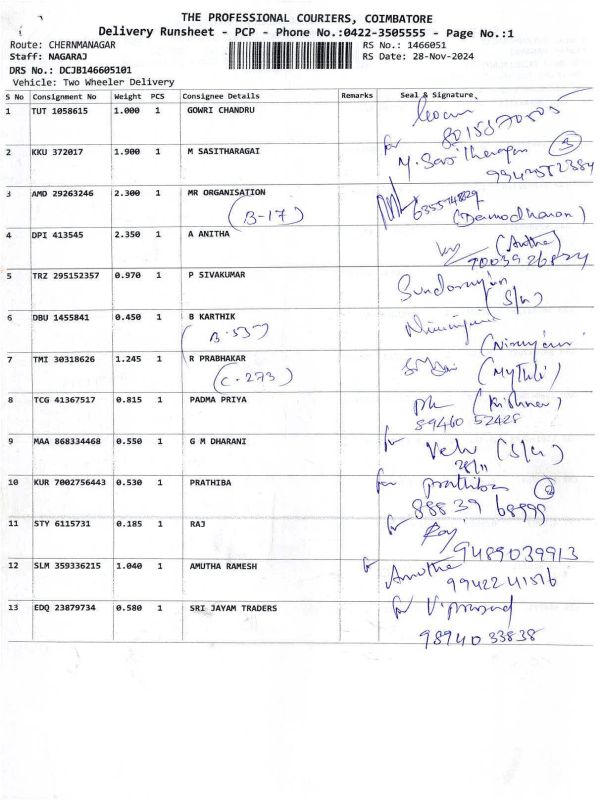 THE PROFESSIONAL COURIERS, COIMBATORE
Delivery Runsheet - PCP - Phone No.:0422-3505555 - Page No.:1
Route: CHERNMANAGAR RS No.: 1466051
Staff: NAGARAJ RS Date: 28-Nov-2024
DRS No.: DCJB146605101
Vehicle: Two Wheeler Delivery
S No Consignment No Weight PCS Consignee Details Remarks Seal & Signature
1 TUT 1058615 1.000 1 GOWRI CHANDRU
2 KKU 372017 1.900 1 M SASITHARAGAI for
3 AMD 29263246 2.300 1 MR ORGANISATION
(B-17) (Damodharan)
4 DPI 413545 2.350 1 A ANITHA (Anitha)
5 TRZ 295152357 0.970 1 P SIVAKUMAR
(S/u)
6 DBU 1455841 0.450 1 B KARTHIK
(B-537)
7 TMI 30318626 1.245 1 R PRABHAKAR (Mythili)
(C-273)
8 TCG 41367517 0.815 1 PADMA PRIYA (Krishna)
89460 52428
9 MAA 868334468 0.550 1 G M DHARANI for Velu (S/u)
28/11
10 KUR 7002756443 0.530 1 PRATHIBA for prathiba 2
88839 68999
11 STY 6115731 0.185 1 RAJ for Raj
9489039913
12 SLM 359336215 1.040 1 AMUTHA RAMESH for Amutha
13 EDQ 23879734 0.580 1 SRI JAYAM TRADERS for V.prasad
9894033838